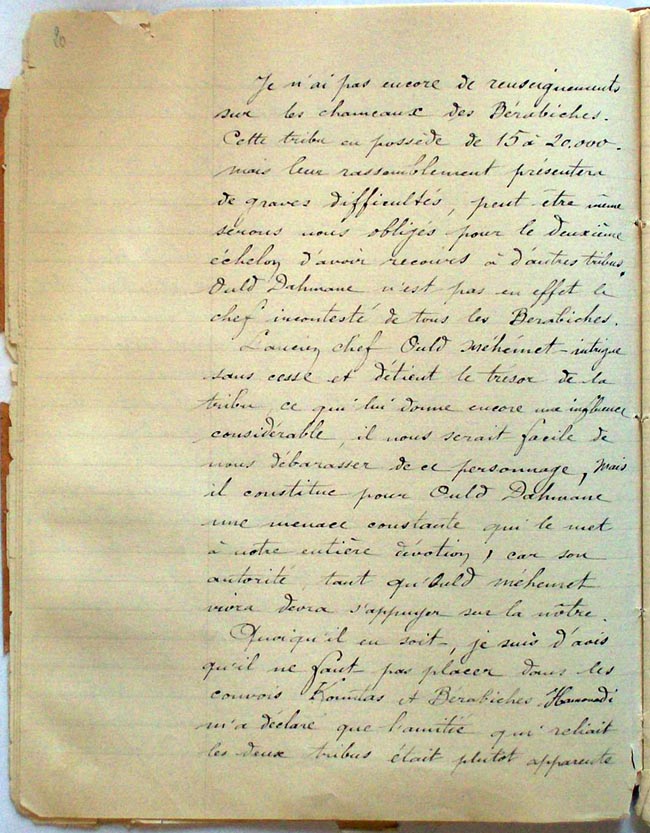 20
Je n'ai pas encore de renseignements
sur les chameaux des Bérabiches.
Cette tribu en possède de 15 à 20.000.
mais leur rassemblement présentera
de graves difficultés, peut être même
serons nous obligés pour le deuxième
échelon d'avoir recours à d'autres tribus.
Ould Dahmane n'est pas en effet le
chef incontesté de tous les Berabiches.
L'ancien chef Ould Méhémet intrigue
sans cesse et détient le trésor de la
tribu, ce qui lui donne encore une influence
considérable, il nous serait facile de
nous débarasser de ce personnage, mais
il constitue pour Ould Dahmane
une menace constante qui le met
à notre entière dévotion, car son
autorité, tant qu'Ould Méhemet
vivra devra s'appuyer sur la nôtre.
Quoiqu'il en soit, je suis d'avis
qu'il ne faut pas placer dans les
convois Kountas et Bérabiches. Hammadi
m'a déclaré que l'amitié qui reliait
les deux tribus était plutôt apparente